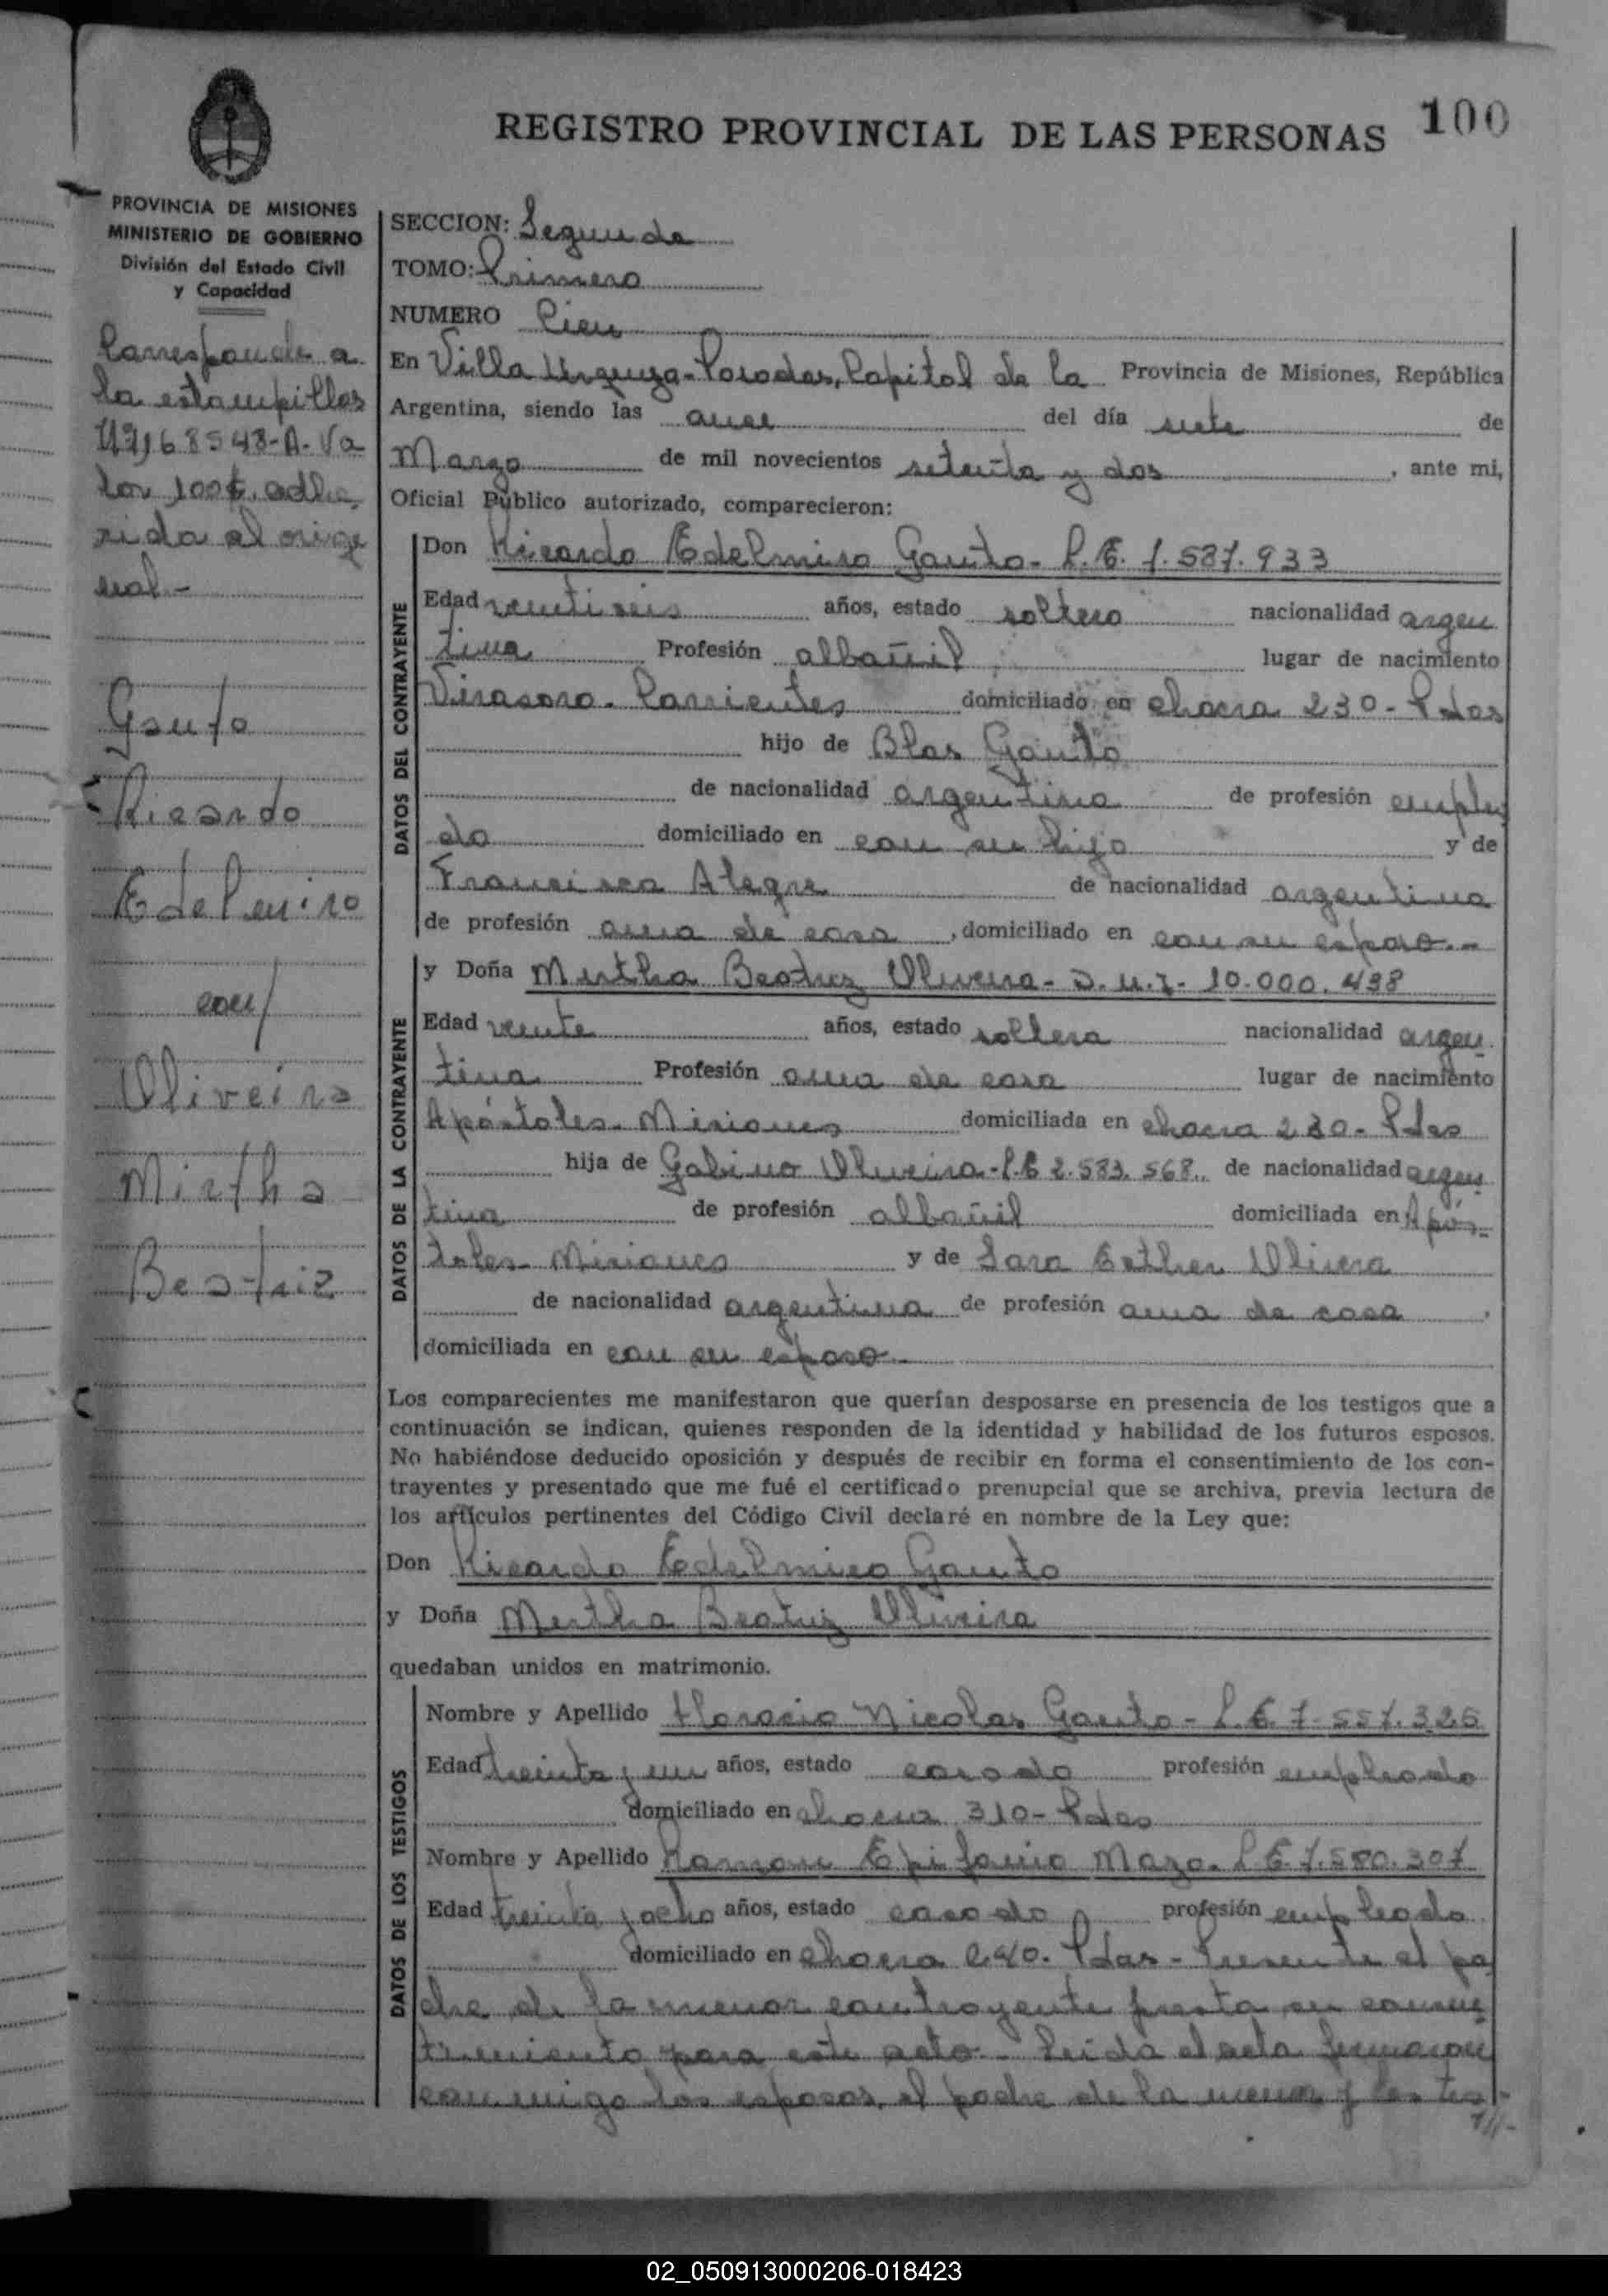 REGISTRO PROVINCIAL DE LAS PERSONAS 100
PROVINCIA DE MISIONES
MINISTERIO DE GOBIERNO
División del Estado Civil
y Capacidad
Corresponde a
la estampillas
68548-A- Va
lor 100$. adhe
rida al origi
nal-
Gauto
Ricardo
Edelmiro
con/
Oliveira
Mirtha
Beatriz
SECCION: Segunda
TOMO: Primero
NUMERO Cien
En Villa Urquiza-Posadas, Capital de la Provincia de Misiones, República
Argentina, siendo las once del día siete de
Marzo de mil novecientos setenta y dos, ante mi,
Oficial Público autorizado, comparecieron:
DATOS DEL CONTRAYENTE
Don Ricardo Edelmiro Gauto- L.E. 7.587.933
Edad veintiseis años, estado soltero nacionalidad argen
tina Profesión albañil lugar de nacimiento
Virasoro. Corrientes domiciliado en chacra 230- Pdas
hijo de Blas Gauto
de nacionalidad argentina de profesión emplea
do domiciliado en con su hijo y de
Francisca Alegre de nacionalidad argentina
de profesión ama de casa, domiciliado en con su esposo.-
DATOS DE LA CONTRAYENTE
y Doña Mirtha Beatriz Oliveira- D.N.I- 10.000.438
Edad veinte años, estado soltera nacionalidad argen
tina Profesión ama de casa lugar de nacimiento
Apóstoles. Misiones domiciliada en chacra 230- Pdas
hija de Gabino Oliveira-L.E 2.583.568.. de nacionalidad argen
tina de profesión albañil domiciliada en Após-
toles- Misiones y de Sara Esther Olivera
de nacionalidad argentina de profesión ama de casa,
domiciliada en con su esposo-
Los comparecientes me manifestaron que querían desposarse en presencia de los testigos que a
continuación se indican, quienes responden de la identidad y habilidad de los futuros esposos.
No habiéndose deducido oposición y después de recibir en forma el consentimiento de los con-
trayentes y presentado que me fué el certificado prenupcial que se archiva, previa lectura de
los artículos pertinentes del Código Civil declaré en nombre de la Ley que:
Don Ricardo Edelmiro Gauto
y Doña Mirtha Beatriz Oliveira
quedaban unidos en matrimonio.
DATOS DE LOS TESTIGOS
Nombre y Apellido Horacio Nicolas Gauto- L.E 7.557.326
Edad treinta y un años, estado casado profesión empleado
domiciliado en chacra 310- Pdas
Nombre y Apellido Epifanio Mazo. L E 7.580.307
Edad treinta y ocho años, estado casado profesión empleado
domiciliado en chacra 240. Pdas- Presente el pa
dre de la menor contrayente presta su consen
timiento para este acto- Leida el acta firmaron
conmigo los esposos, el padre de la menor y los tes-
///-
02_050913000206-018423